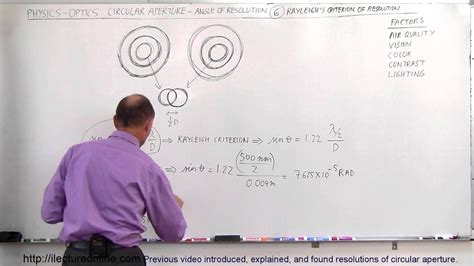 PHYSICS - OPTICS: CIRCULAR APERTURE - ANGLE OF RESOLUTION ⑥ RAYLEIGH'S CRITERION OF RESOLUTION
FACTORS
AIR QUALITY
VISION
COLOR
CONTRAST
LIGHTING
½D
D ⇒ RAYLEIGH CRITERION ⇒ sin θ = 1.22 (λ/2)/D
⇒ sin θ = 1.22 (500 nm/2)/0.004m = 7.615 X 10⁻⁵ RAD
http://ilectureonline.com Previous video introduced, explained, and found resolutions of circular aperture.